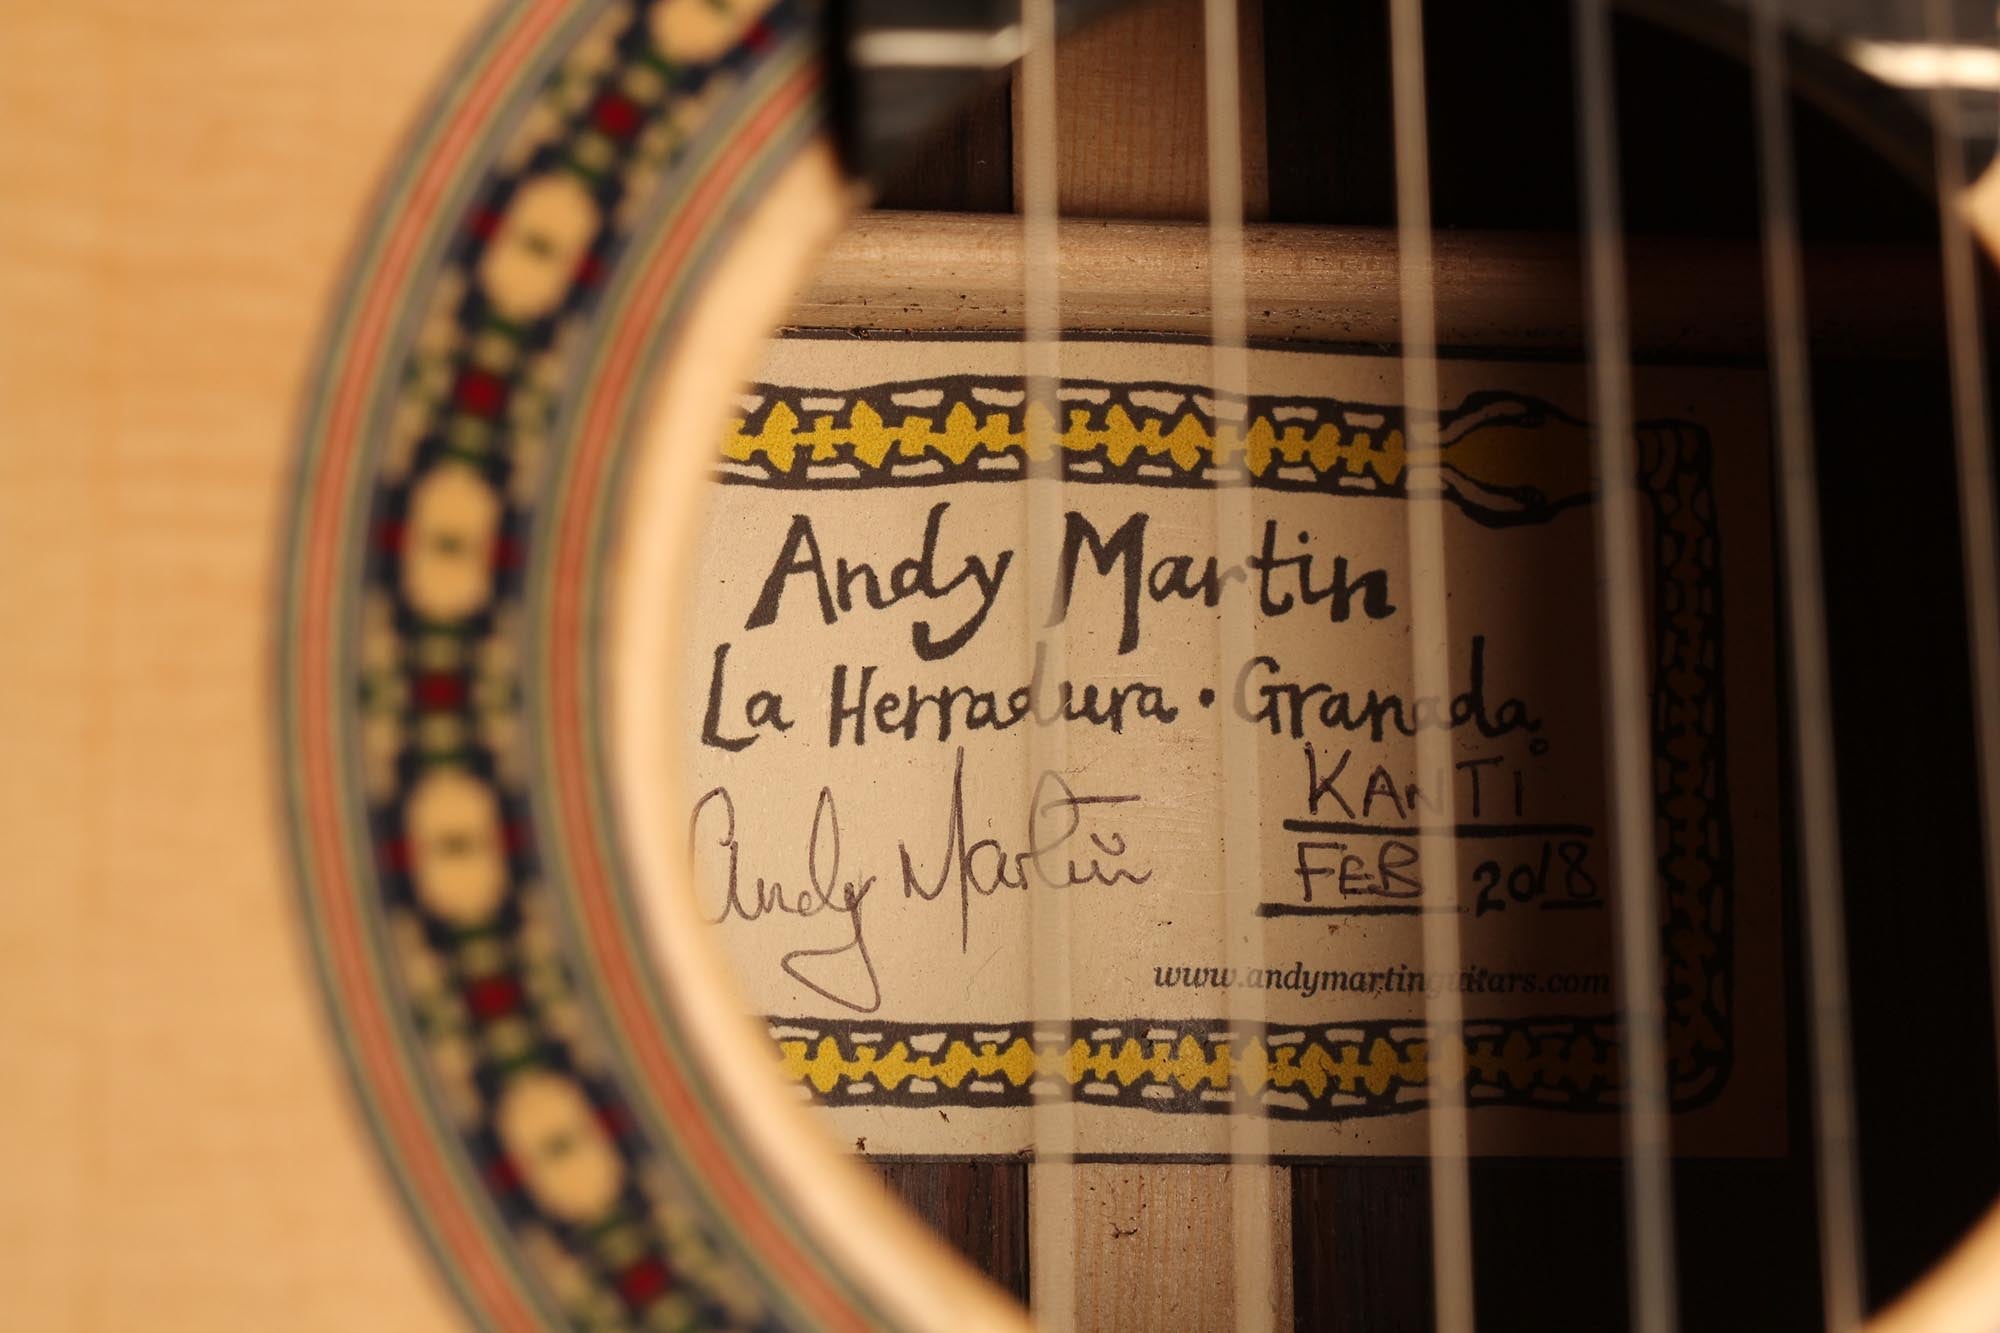 Andy Martin
La Herradura · Granada
Andy Martin
KANTI
FEB 2018
www.andymartinguitars.com